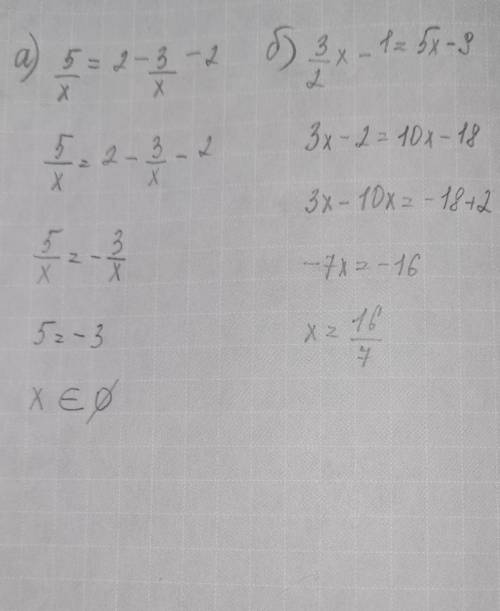 а) 5/x = 2 - 3/x - 2
5/x = 2 - 3/x - 2
5/x = - 3/x
5 = -3
x ∈ ∅
б) 3/2 x - 1 = 5x - 9
3x - 2 = 10x - 18
3x - 10x = -18 + 2
-7x = -16
x = 16/7